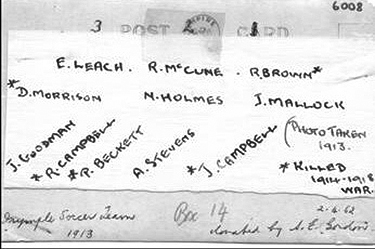 6008
3 2 1
POST CARD
EMPIRE
E. LEACH. R. McCUNE. R. BROWN*
*D. MORRISON N. HOLMES J. MALLOCK
J. GOODMAN *R. CAMPBELL *R. BECKETT A. STEVENS *J. CAMPBELL
(PHOTO TAKEN
1913.
*KILLED
1914-1918
WAR.
Soccer Team Box 14 2.4.62
1913 donated by S.E. Gordon